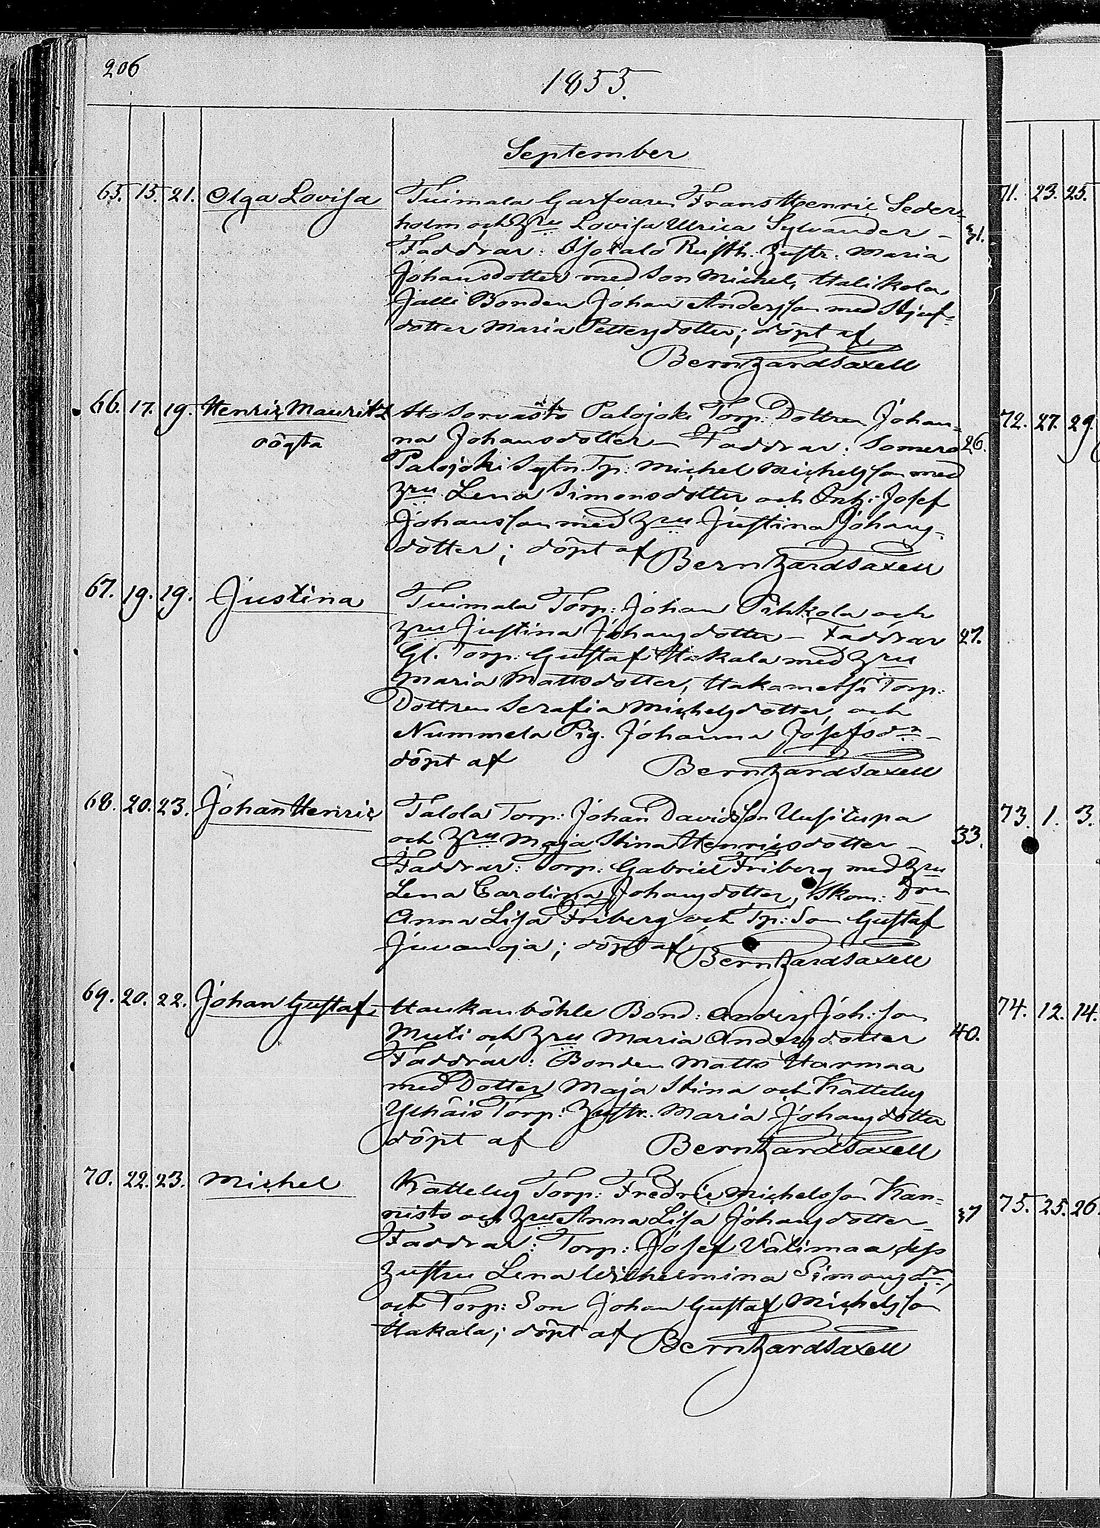 206
1853.
September
65. 15. 21. Olga Lovisa Tuimala Garfvaren Frans Henric Seder-
holm och Hru Lovisa Ulrica Sylvander – 31.
Faddrar: Ojotalo Rusth. Hustr. Maria
Johansdotter med Son Michel, Halikola
Jalli Bonden Johan Andersson med Stjuf-
dotter Maria Pettersdotter; döpt af
Bernhard Saxell
66. 17. 19. Henric Mauritz Palojoki Torp. Dottren Johan-
oägta na Johansdotter – Faddrar: Somero 26.
Palojoki Sytn. Tp: Michel Michelsson med
Hru Lena Simonsdotter och Josef
Johansson med Hru Justina Johans-
dotter; döpt af Bernhard Saxell
67. 19. 19. Justina Tuimala Torp: Johan Pihkola och
Hru Justina Johansdotter – Faddrar 27.
Gl. Torp: Gustaf Hakala med Hru
Maria Mattsdotter, Hakametsä Torp:
Dottren Serafia Michelsdotter, och
Nummela Pig. Johanna Josefsdr –
döpt af Bernhard Saxell
68. 20. 23. Johan Henric Talola Torp: Johan Davidsson Uusitupa
och Hru Maja Stina Henricsdotter – 33.
Faddrar: Torp: Gabriel Friberg med Hru
Lena Carolina Johansdotter, Skom:
Anna Lisa Friberg och Tp: Son Gustaf
Juvanoja; döpt af Bernhard Saxell
69. 20. 22. Johan Gustaf Haukanböhle Bond: Anders Joh:son
Muti och Hru Maria Andersdotter 40.
Faddrar: Bonden Matts Harmaa
med Dotter Maja Stina och Katteluy
Torp: Hustr. Maria Johansdotter
döpt af Bernhard Saxell
70. 22. 23. Michel Katteluy Torp: Fredric Michelsson Kan-
nisto och Hru Anna Lisa Johansdotter – 37
Faddrar: Torp: Josef Välimaa dess
Hustru Lena Wilhelmina Simonsdr,
och Torp: Son Johan Gustaf Michelsson
Hakala; döpt af Bernhard Saxell
71. 23. 25.
72. 27. 29
73. 1. 3.
74. 12. 14.
75. 25. 26.